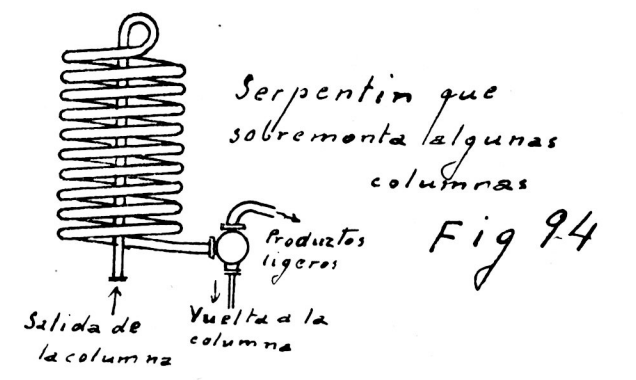 Serpentin que
sobremonta algunas
columnas
Fig 94
Productos
ligeros
Salida de
la columna
Vuelta a la
columna